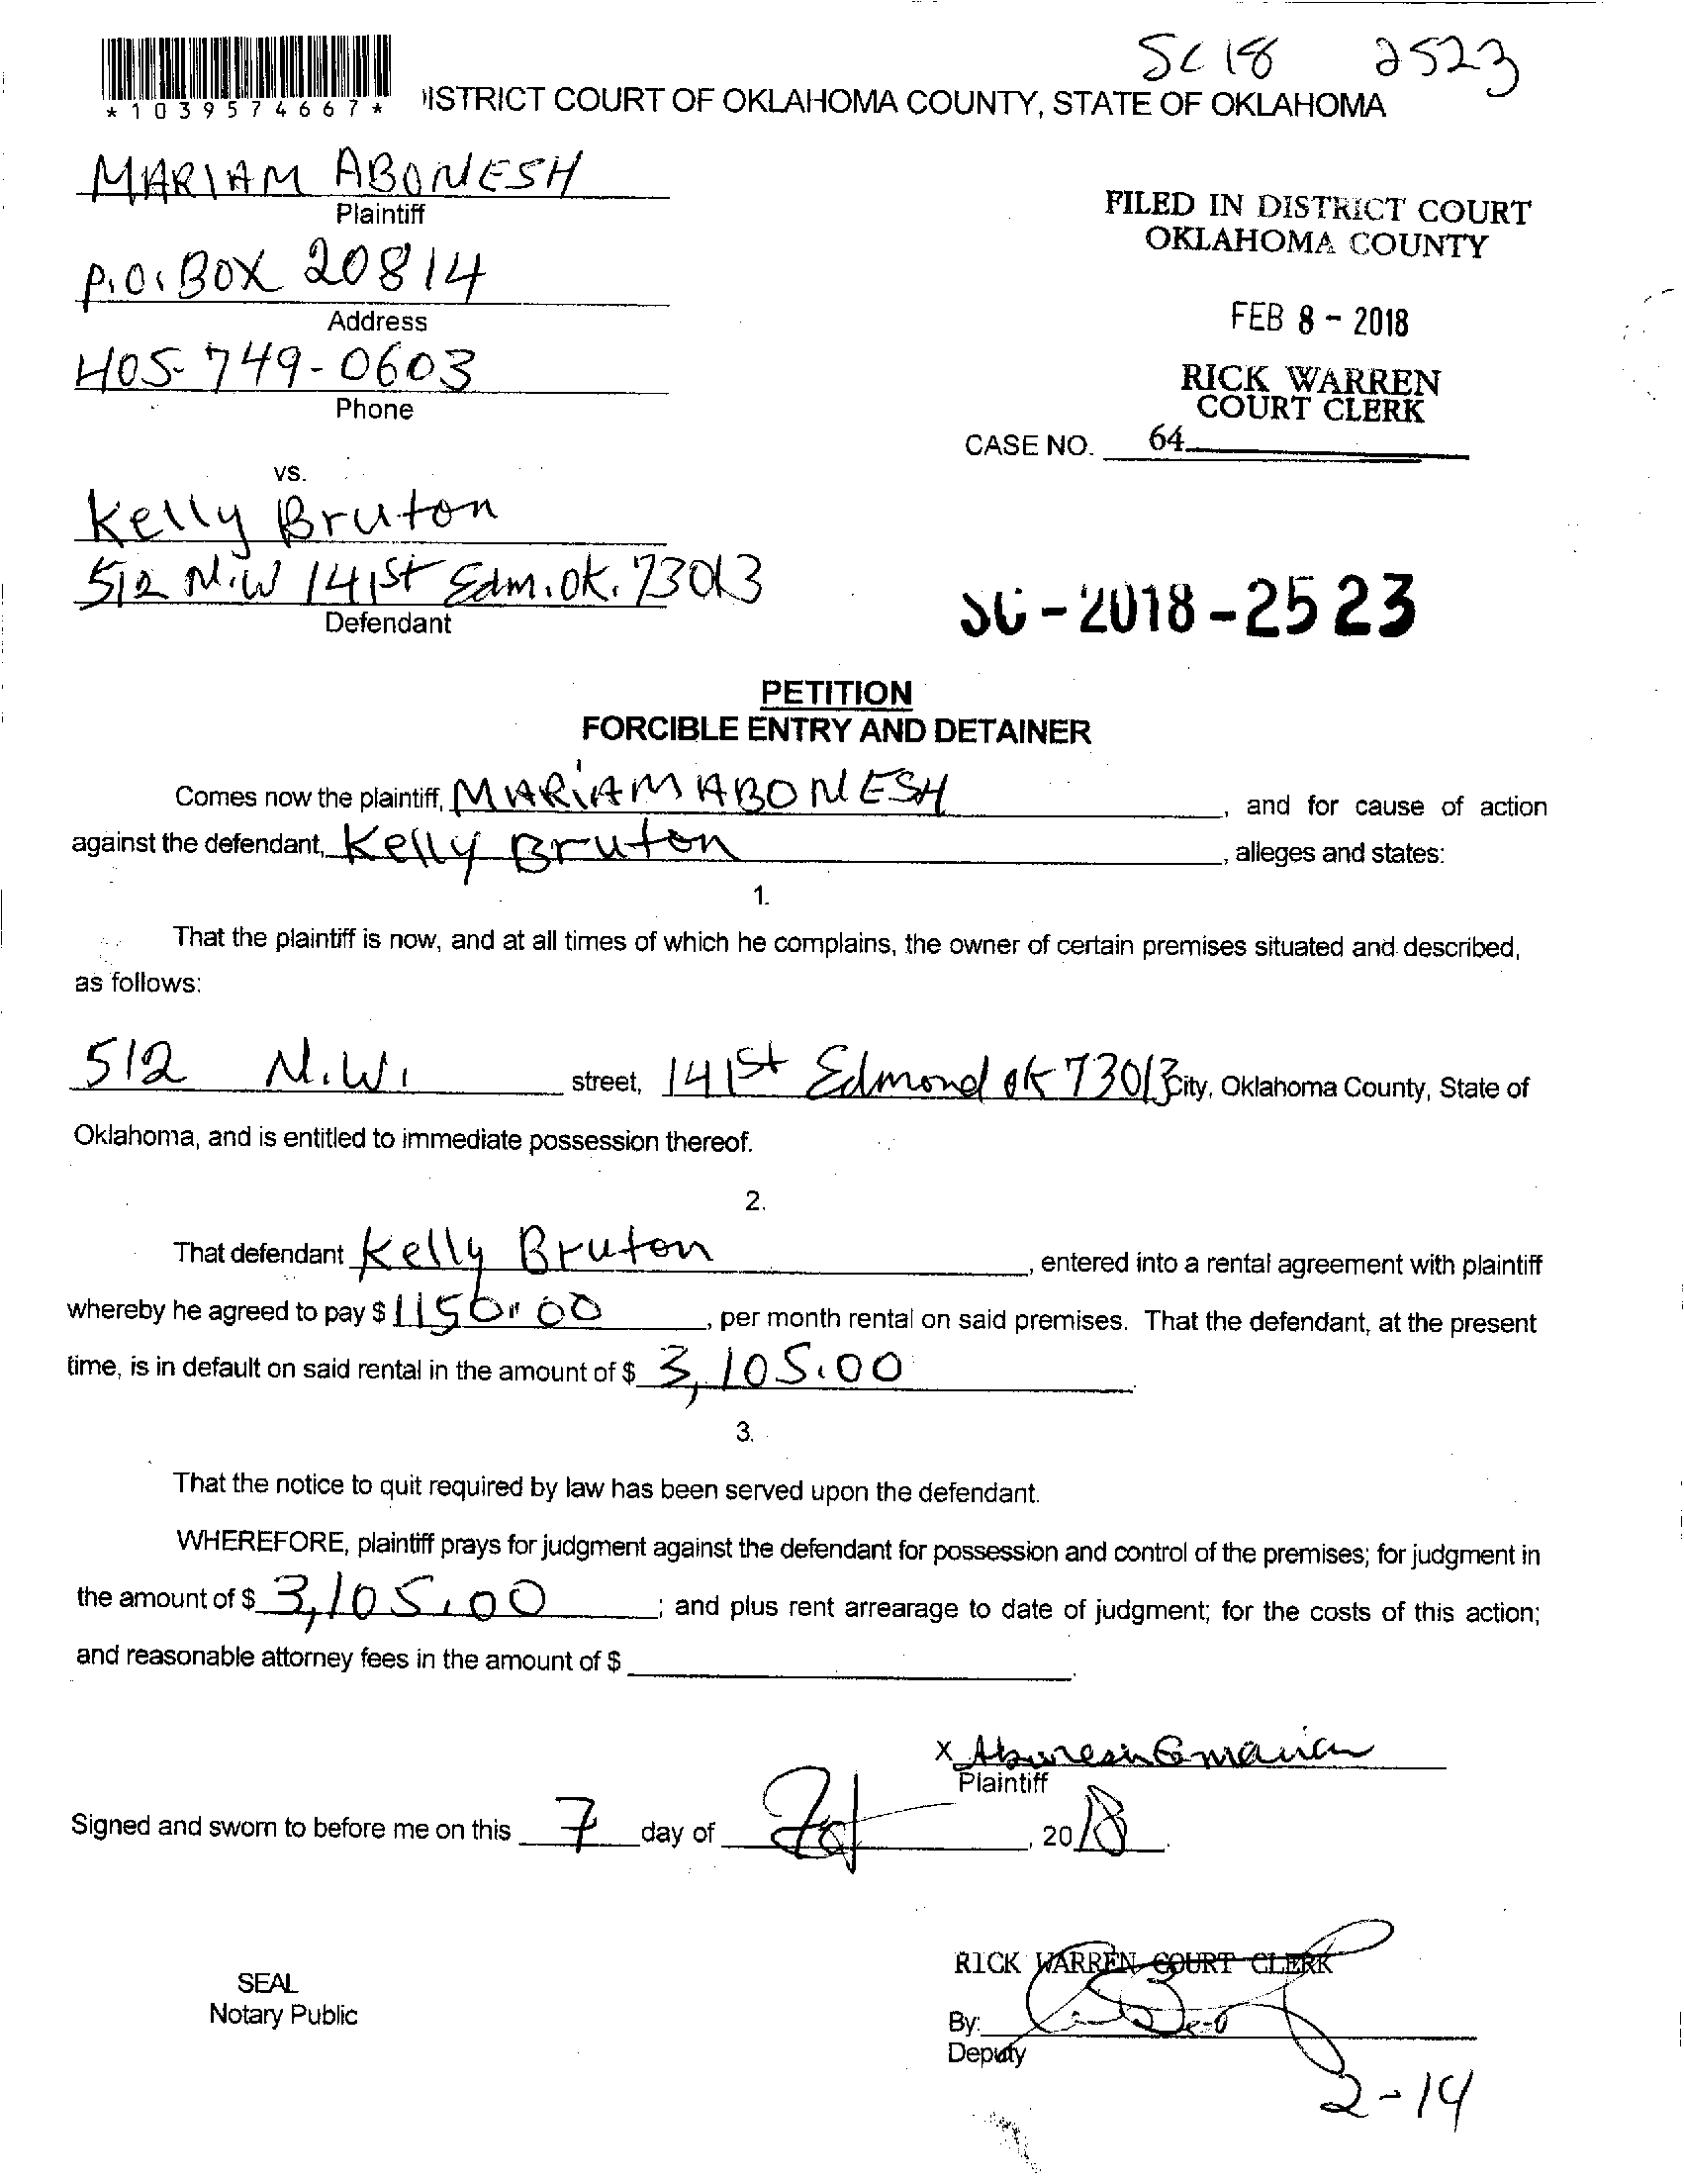 SC 18 2523
*1039574667*
ISTRICT COURT OF OKLAHOMA COUNTY, STATE OF OKLAHOMA
MARIAM ABONESH
Plaintiff
P.O. BOX 20814
Address
405-749-0603
Phone
FILED IN DISTRICT COURT
OKLAHOMA COUNTY
FEB 8 - 2018
RICK WARREN
COURT CLERK
CASE NO. 64
vs.
Kelly Bruton
512 N.W 141st Edm. OK. 73013
Defendant
SC-2018-2523
PETITION
FORCIBLE ENTRY AND DETAINER
Comes now the plaintiff, MARIAM ABONESH, and for cause of action
against the defendant, Kelly Bruton, alleges and states:
1.
That the plaintiff is now, and at all times of which he complains, the owner of certain premises situated and described,
as follows:
512 N.W. street, 141st Edmond OK 73013 City, Oklahoma County, State of
Oklahoma, and is entitled to immediate possession thereof.
2.
That defendant Kelly Bruton, entered into a rental agreement with plaintiff
whereby he agreed to pay $1150.00, per month rental on said premises. That the defendant, at the present
time, is in default on said rental in the amount of $ 3,105.00.
3.
That the notice to quit required by law has been served upon the defendant.
WHEREFORE, plaintiff prays for judgment against the defendant for possession and control of the premises; for judgment in
the amount of $ 3,105.00; and plus rent arrearage to date of judgment; for the costs of this action;
and reasonable attorney fees in the amount of $ .
X Abonesh Mariam
Plaintiff
Signed and sworn to before me on this 7 day of , 2018.
RICK WARREN COURT CLERK
SEAL
Notary Public
By:
Deputy
2-14